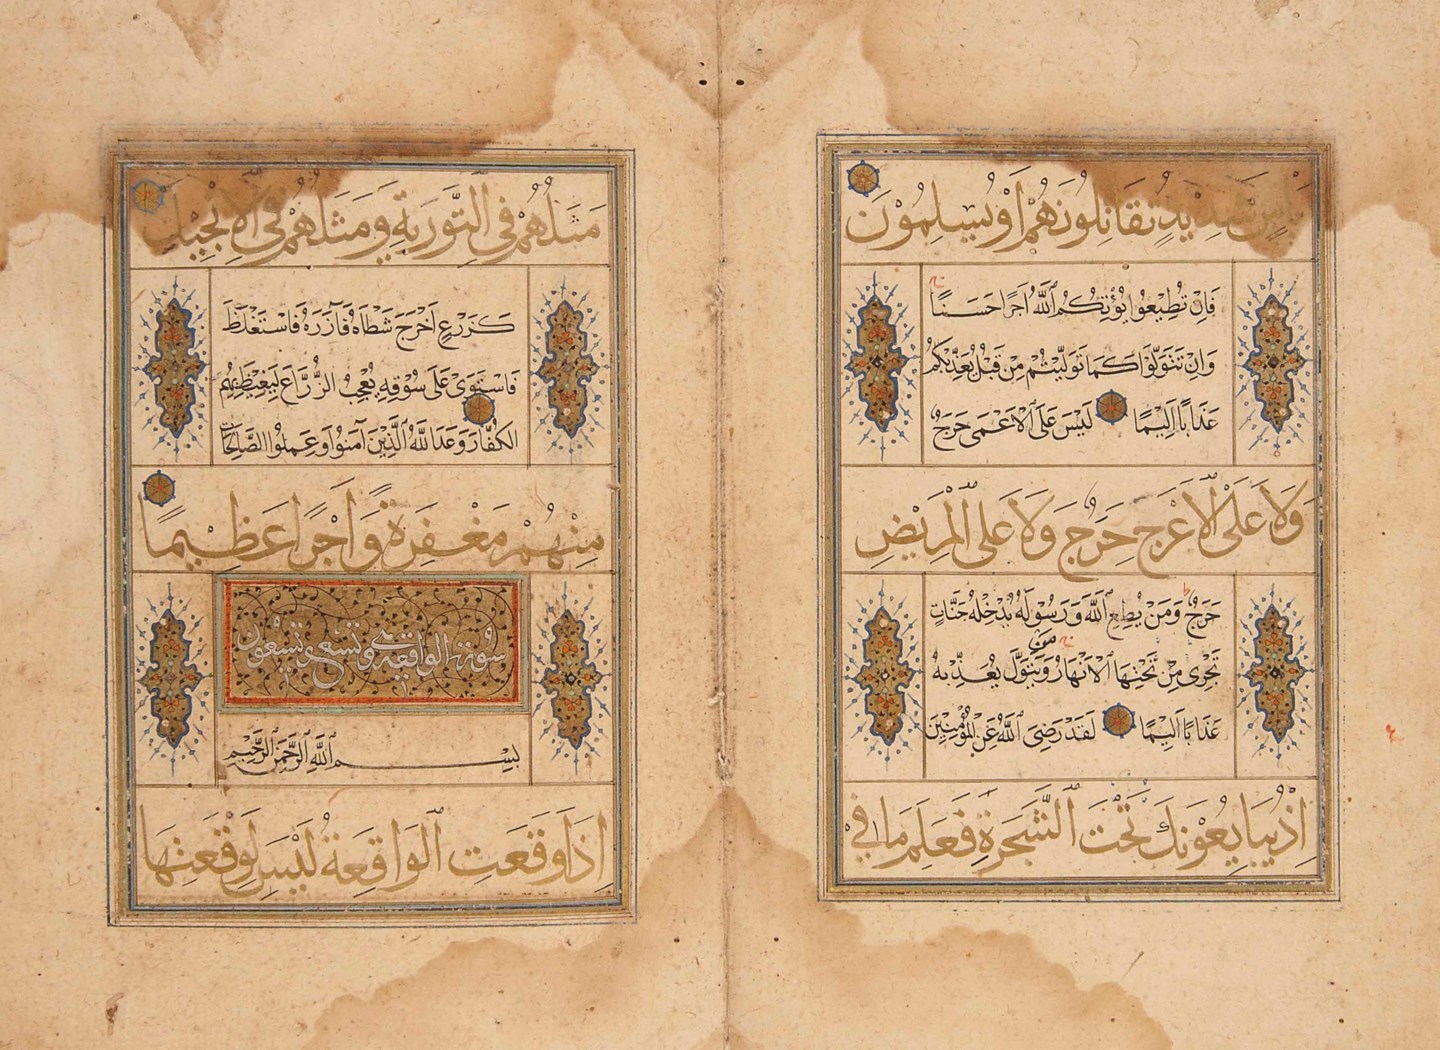 بَأْسٍ شَدِيْدٍ تُقَاتِلُوْنَهُمْ اَوْ يُسْلِمُوْنَ
فَاِنْ تُطِيْعُوا يُؤْتِكُمُ اللّٰهُ اَجْرًا حَسَنًا
وَاِنْ تَتَوَلَّوْا كَمَا تَوَلَّيْتُمْ مِنْ قَبْلُ يُعَذِّبْكُمْ
عَذَابًا اَلِيْمًا لَيْسَ عَلَى الْاَعْمَى حَرَجٌ
وَلَا عَلَى الْاَعْرَجِ حَرَجٌ وَلَا عَلَى الْمَرِيْضِ
حَرَجٌ وَمَنْ يُطِعِ اللّٰهَ وَرَسُوْلَهُ يُدْخِلْهُ جَنَّاتٍ
تَجْرِى مِنْ تَحْتِهَا الْاَنْهَارُ وَمَنْ يَتَوَلَّ يُعَذِّبْهُ
عَذَابًا اَلِيْمًا لَقَدْ رَضِىَ اللّٰهُ عَنِ الْمُؤْمِنِيْنَ
اِذْ يُبَايِعُوْنَكَ تَحْتَ الشَّجَرَةِ فَعَلِمَ مَا فِيْ
مَثَلُهُمْ فِي التَّوْرٰيةِ وَمَثَلُهُمْ فِي الْاِنْجِيْلِ
كَزَرْعٍ اَخْرَجَ شَطْاَهُ فَاٰزَرَهُ فَاسْتَغْلَظَ
فَاسْتَوَى عَلَى سُوْقِهِ يُعْجِبُ الزُّرَّاعَ لِيَغِيْظَ بِهِمُ
الْكُفَّارَ وَعَدَ اللّٰهُ الَّذِيْنَ آمَنُوا وَعَمِلُوا الصَّالِحَاتِ
مِنْهُمْ مَغْفِرَةً وَاَجْرًا عَظِيْمًا
سورة الواقعة وتسع وتسعون
بِسْمِ اللّٰهِ الرَّحْمٰنِ الرَّحِيْمِ
اِذَا وَقَعَتِ الْوَاقِعَةُ لَيْسَ لِوَقْعَتِهَا